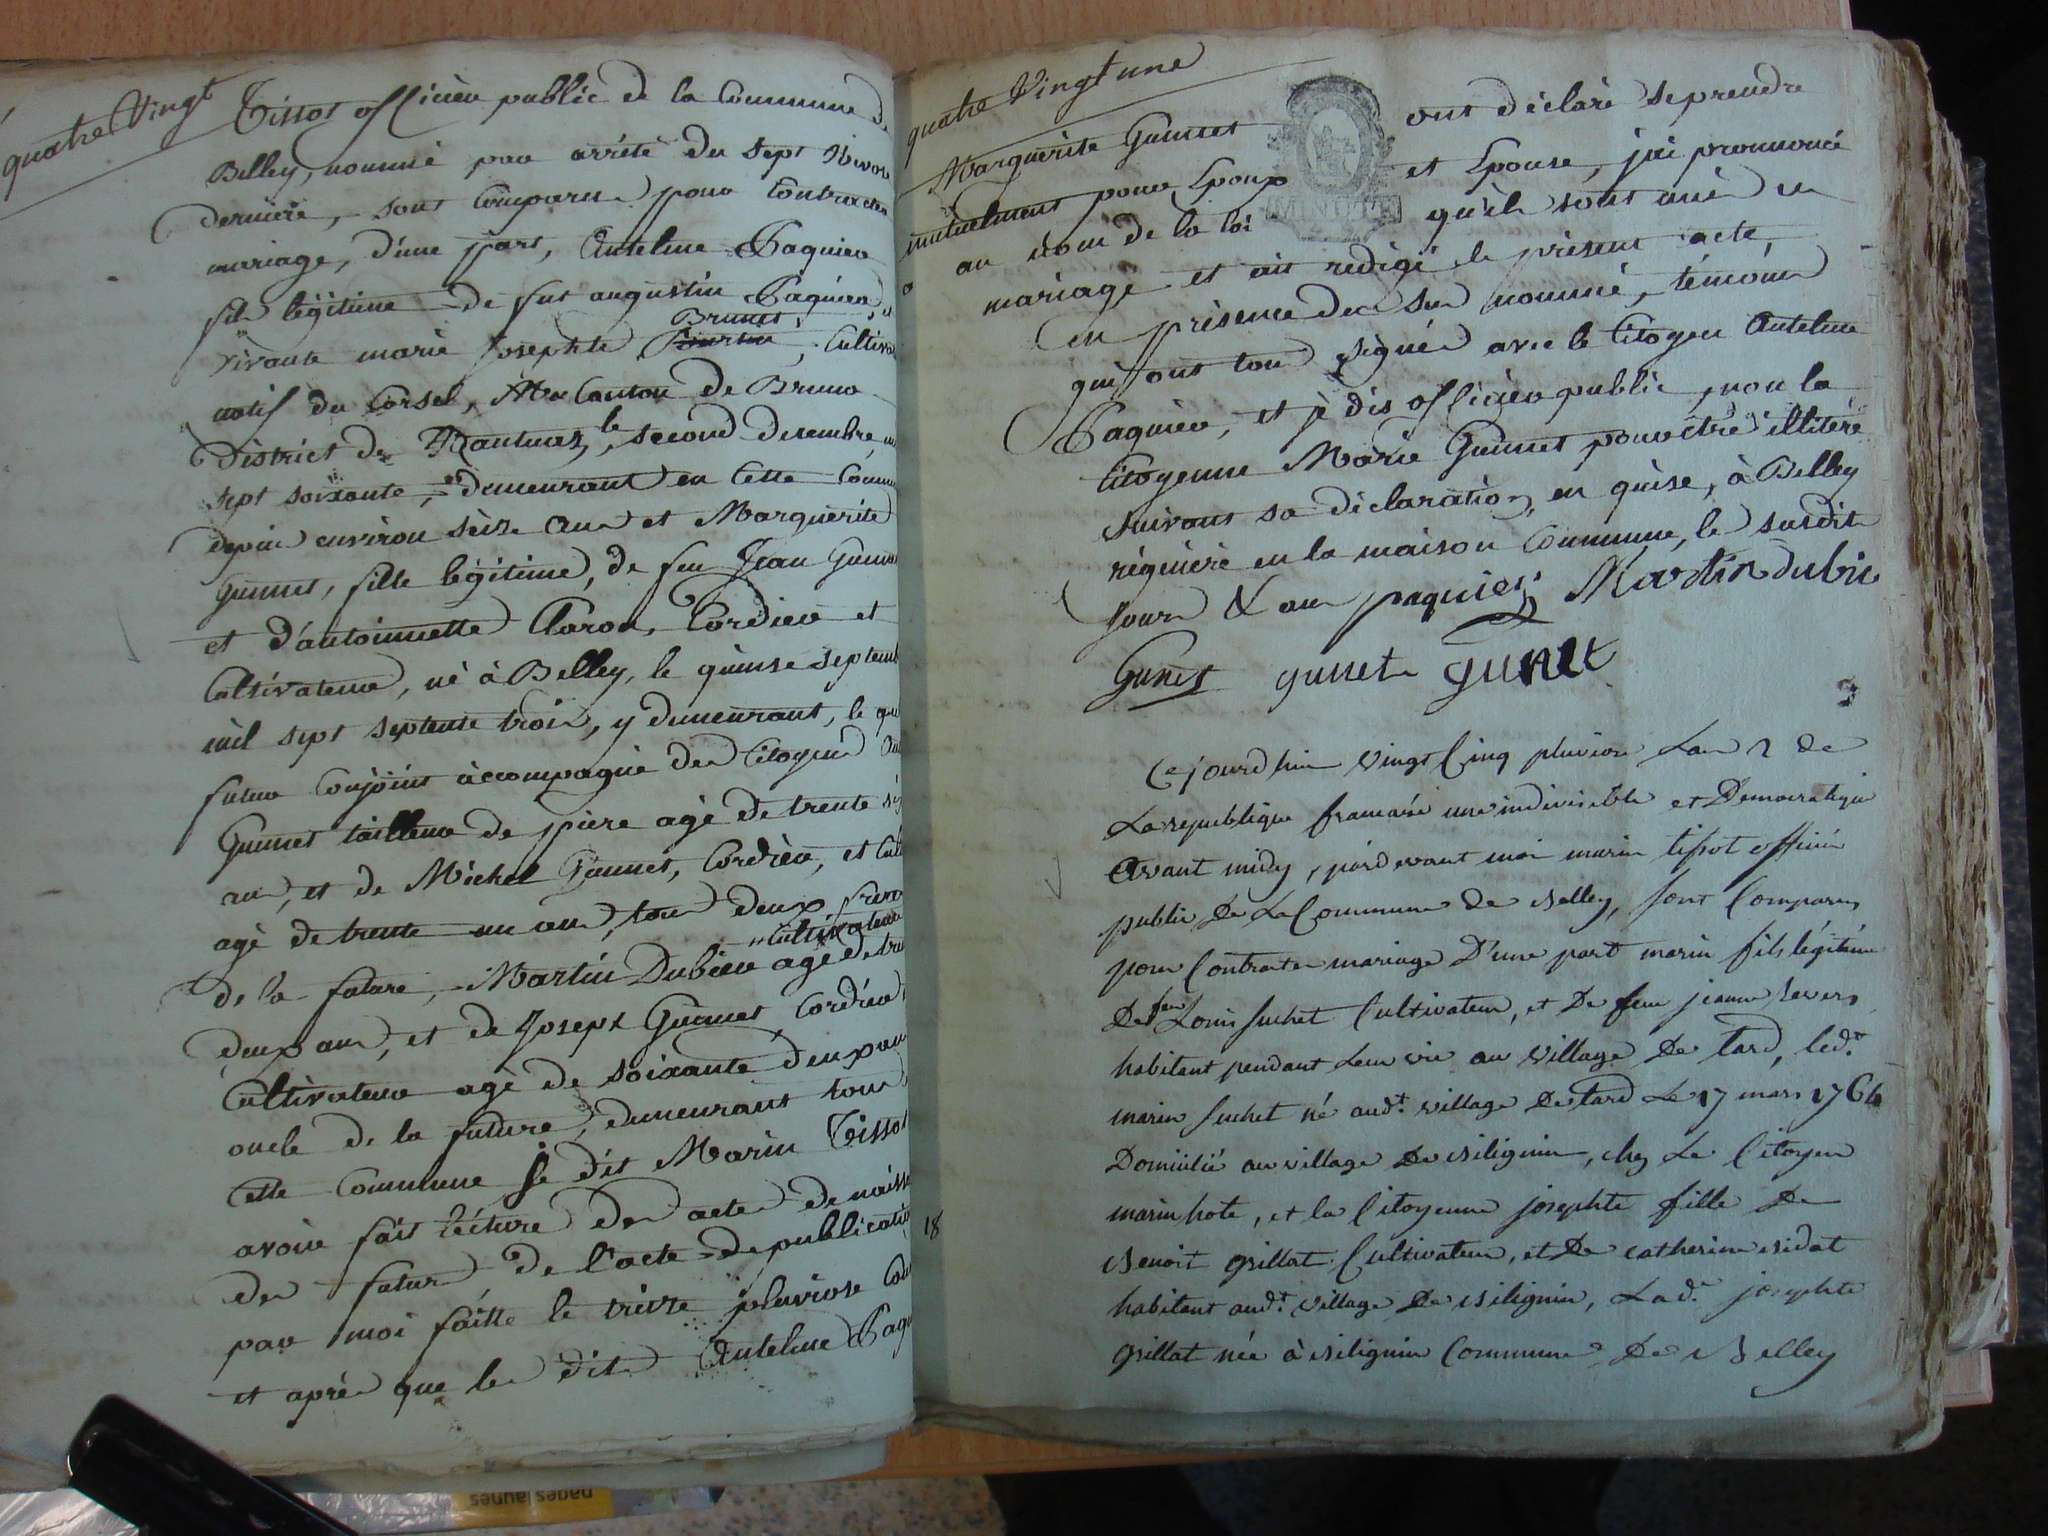 quatre Vingt
Tissot officier public de la Commune de
Belley, nommé par arrêté du sept Nivose
derniere, sont comparu pour Contracter
mariage, d'une part, Anteline Paquier
fils legitime de fut augustin Paquier, et
vivante marie Josephte Brunet, Cultiva
natif du Corsel, Canton de
District de le second desembre, mil
sept soixante, demeurant en Cette Commu
depui environ seize ans et Marguérite
Gunnet, fille legitime, de feu Jean Gunnet
et d'antoinnette Claron, Cordier et
Cultivateur, né à Belley, le quinse septemb
mil sept septente trois, y demeurant, le quel
futur Conjoint accompagné des Citoyens
Gunnet tailleur de piere agé de trente
ans, et de Michel Gunnet, Cordiér, et Cult
agé de trente un ans, tous deux frere
de la future, Martin Dubier Cultivateur agé de tre
deux ans, et de Joseph Gunnet, Cordier
Cultivateur agé de soixante deux ans
oncle de la future, demeurant tous
Cette Commune Je dis Marin Tissot
avoir fait lécture des actes de naiss
des futurs de l'acte de publicatio
par moi faitte le treize pluviose
et après que les dits Anteline Paqu
quatre Vingt une
Marguérite Gunnet ont déclaré se prendre
mutuelment pour Epoux et Epouse, j'ai prononcé
au nom de la loi qu'ils sont unis en
MINUTE
mariage et ait redigé le présent acte,
en présence des sus nommé, témoins
qui ont tous signés avec le Citoyen Anteline
Paquier, et je dis officier public, non la
Citoyenne Marie Gunnet pour être illitéré
suivant sa déclaration, en quise, à Belley
réquiéré en la maison Commune, le susdit
Jours & ans paquier Martin dubie
Gunet gunet gunet
Cejourdhui vingt Cinq pluviose Lan 2 de
La republique francaise une indivisible et Democratique
avant midy, pardevant moi marin tissot officier
public De La Commune de Belley, sont Comparus
pour Contracter mariage D'une part marin fils légitime
De feu Louis suchet Cultivateur, et De feue jeanne
habitant pendant Leur vie au village De tard, led.t
marin suchet né aud.t village De tard Le 17 mars 1764
Domicilié au village De Bilignin, chez Le Citoyen
marin hote, et la Citoyenne josephte fille De
Benoit grillat Cultivateur, et De catherine bidat
habitant aud.t village De Bilignin, Lad.e josephte
grillat née à Bilignin Commune De Belley
18
pages jaunes